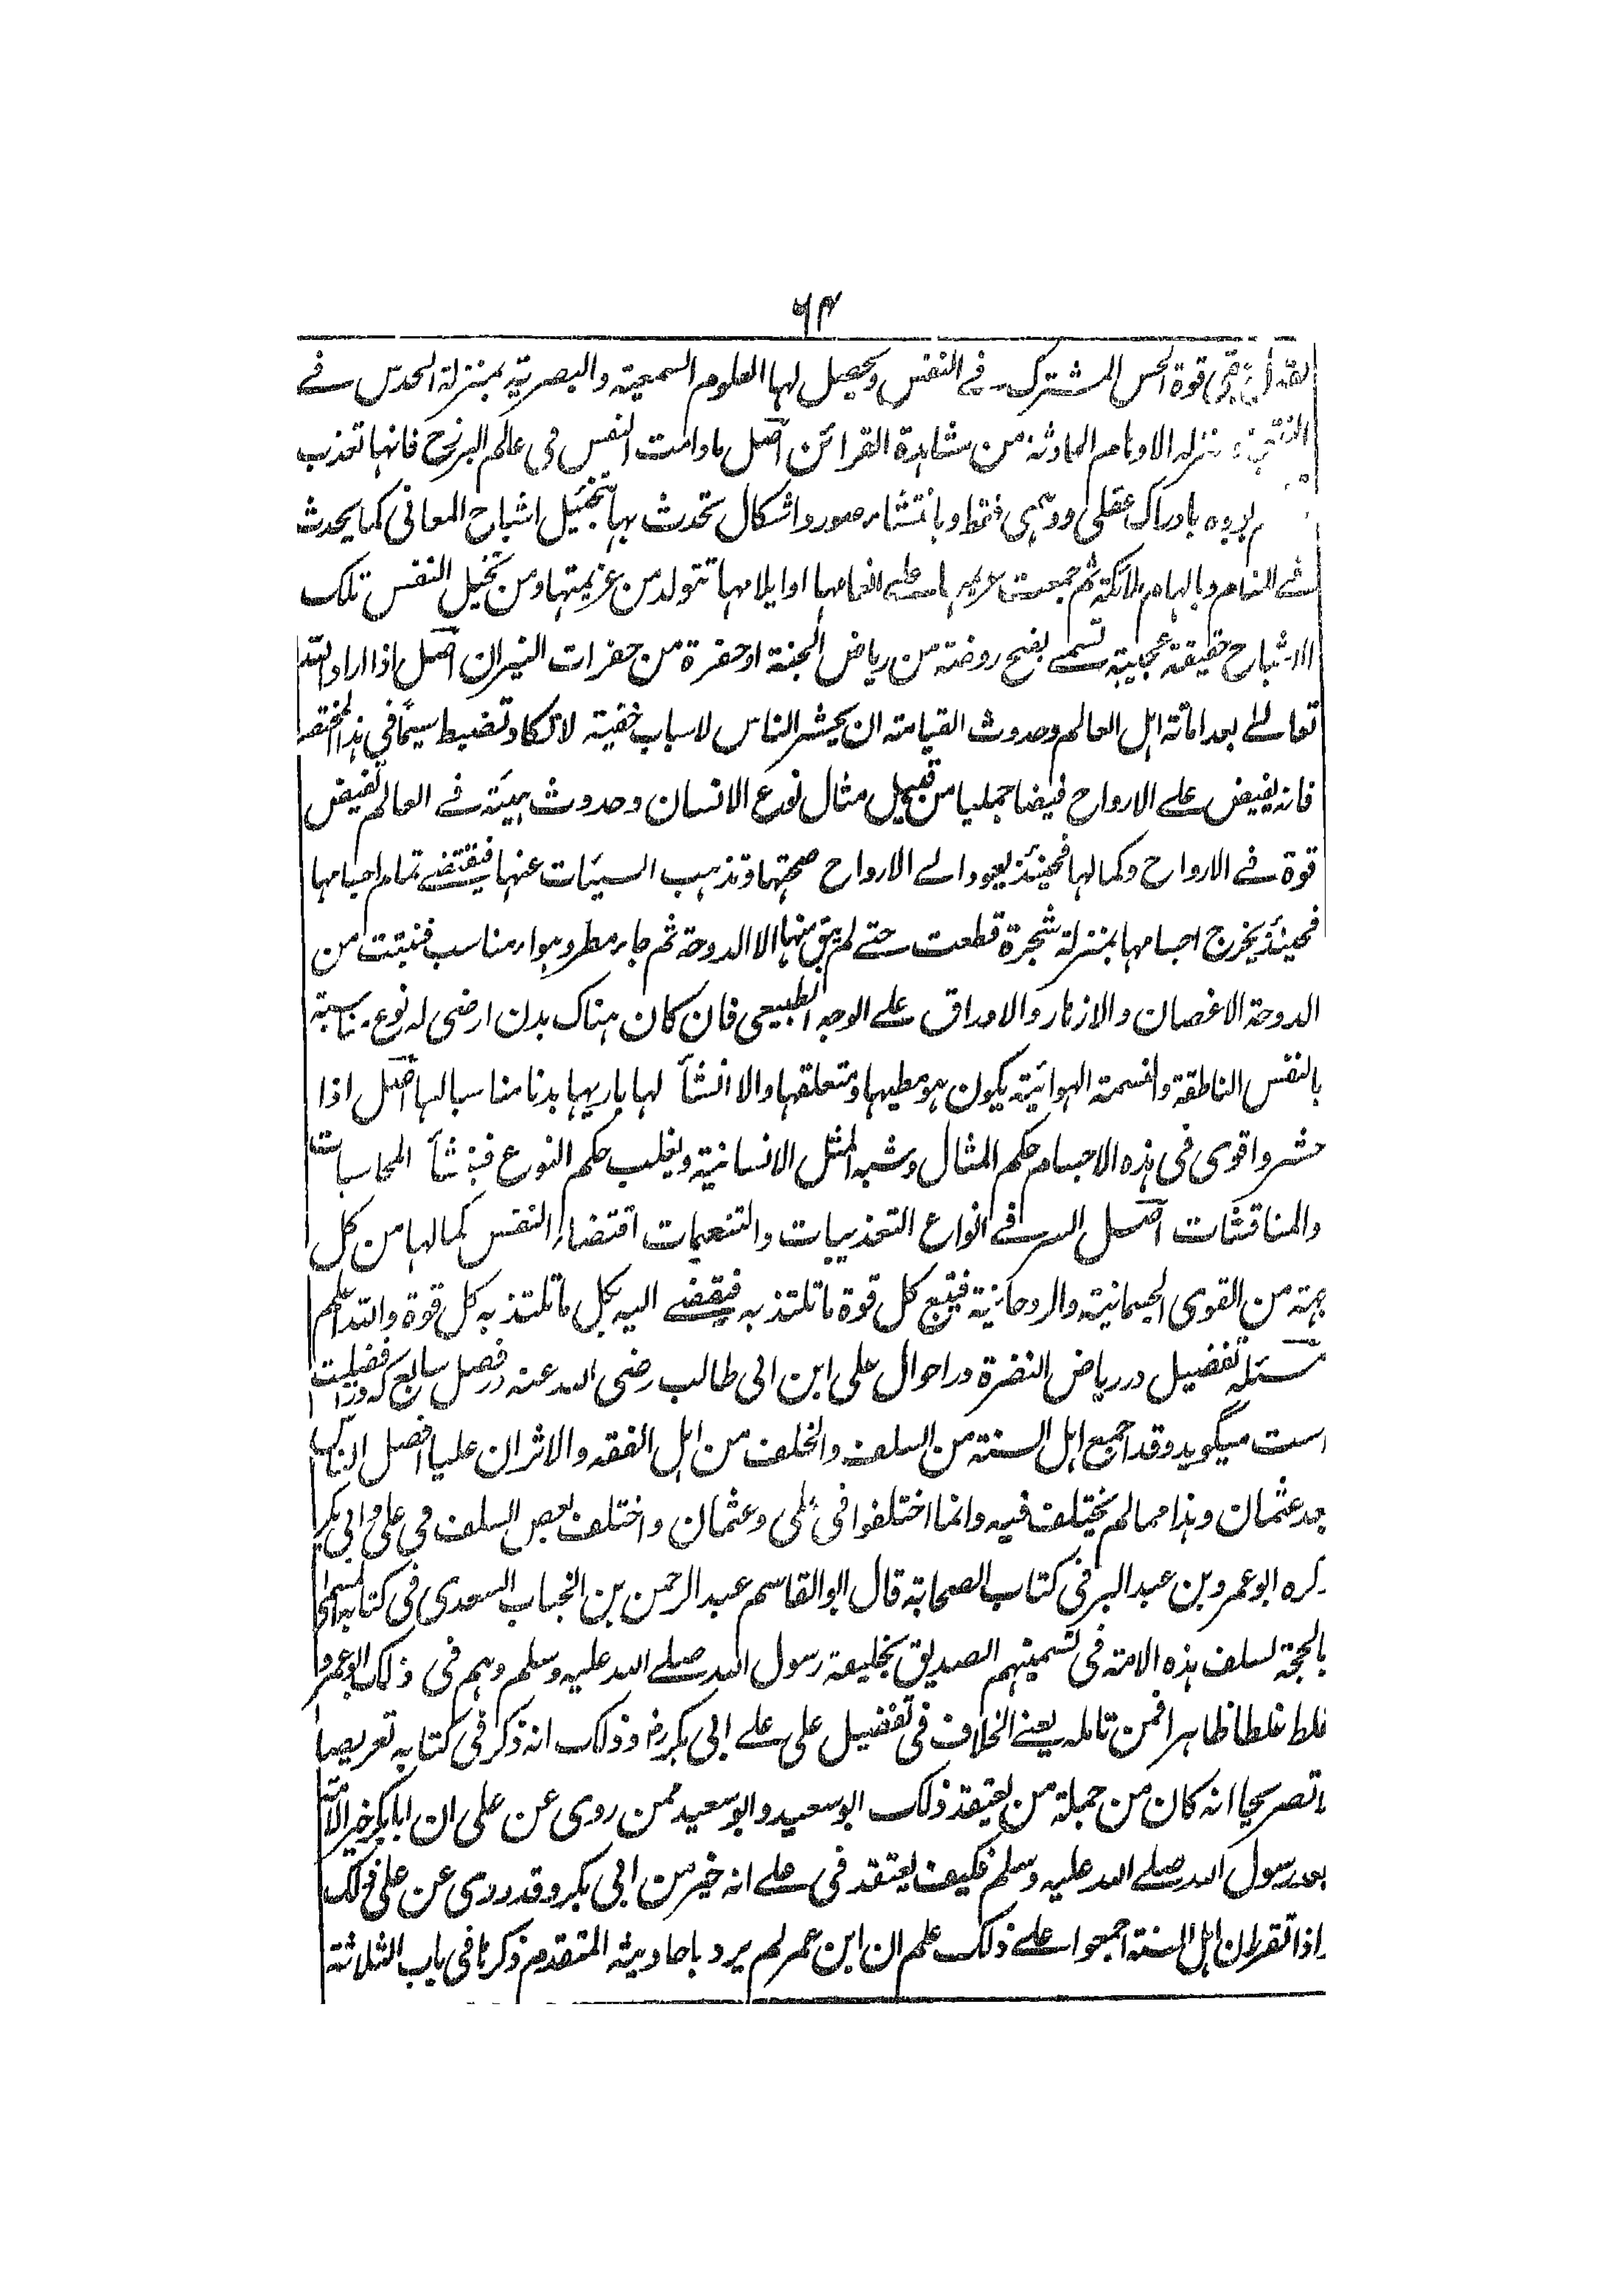 ٦٣
قوة الحس المشترك فی النفس ویحصل لها العلوم السمعیة والبصریة بمنزلة الحدس فے
الاوہام الحادثة من مشاہدة القرائن اصل مادامت النفس فی عالم البرزخ فانها تعذب
بادراک عقلی ووہمی فقط وبانتشار صور واشکال تحدث بها تخئیل اشباح المعانی کما یحدث
فے المنام وبالہام ملائکة ثم جمعت علے انعامہا او ایلامہا تتولد من عزیمتہا ومن تخیل النفس تلک
الاشباح حقیقة عجیبة تسمے بفتح روضة من ریاض الجنة او حفرة من حفرات النیران اصل اذا اراد اللہ
تعالےٰ بعد اماتة اہل العالم وحدوث القیامة ان یحشر الناس لاسباب خفیة لا تکاد تضبط سیما فی ہذا المختصر
فانہ یفیض علے الارواح فیضا جملیا من قبیل مثال نوع الانسان وحدوث ہیئة فے العالم تفیض
قوة فے الارواح وکمالہا فحینئذ یعود الے الارواح صحتہا وتذہب السیئات عنہا فیقتضے تمام اجسامہا
فحینئذ یخرج اجسامہا بمنزلة شجرة قطعت حتے لم یبق منہا الا الدوحة ثم جاء مطر وہواء مناسب فنبتت من
الدوحة الاغصان والازہار والاوراق علے الوجہ الطبیعی فان کان ہناک بدن ارضی لہ نوع مناسبة
بالنفس الناطقة والنسمة الہوائیة یکون ہو مطیہا ومتعلقہا والا انشأ لہا باریہا بدنا مناسبا لہا اصل اذا
حشروا قوی فی ہذہ الاجسام حکم المثال وشبہ المثل الانسانیة ویغلب حکم النوع فینشأ المحاسبات
والمناقشات اصل السر فے انواع التعذیبات والتنعیمات اقتضاء النفس کمالہا من کل
جہة من القوی الجسمانیة والروحانیة فیتبع کل قوة ما تلتذ بہ فیفضے الیہ بکل ما تلتذ بہ کل قوة واللہ اعلم
مسئلہ تفضیل در ریاض النضرة در احوال علی ابن ابی طالب رضی اللہ عنہ در فصل سابع کہ در افضیلت
است میگوید وقد اجمع اہل السنة من السلف والخلف من اہل الفقہ والاثر ان علیا افضل الناس
بعد عثمان وہذا مما لم یختلف فیہ وانما اختلفوا فی علی وعثمان واختلف بعض السلف فی علی وابی بکر
ذکرہ ابو عمرو بن عبد البر فی کتاب الصحابة قال ابو القاسم عبد الرحمن بن الخباب السعدی فی کتابہ المسمی
بالحجة لسلف ہذہ الامة فی تسمیتہم الصدیق بخلیفة رسول اللہ صلے اللہ علیہ وسلم وہم فی ذلک ابو عمرو
غلط غلطا ظاہرا فمن تاملہ یعنے الخلاف فی تفضیل علی علے ابی بکر رض وذلک انہ ذکر فی کتابہ تعریضا
لا تصریحا انہ کان من جملة من یعتقد ذلک ابو سعید وابو سعید ممن روی عن علی ان ابا بکر خیر الامة
بعد رسول اللہ صلے اللہ علیہ وسلم فکیف یعتقد فی علے انہ خیر من ابی بکر وقد روی عن علی ذلک
واذا تقرر ان اہل السنة اجمعوا علے ذلک علم ان ابن عمر لم یرد باحادیثہ المتقدم ذکرہا فی باب الثلاثة